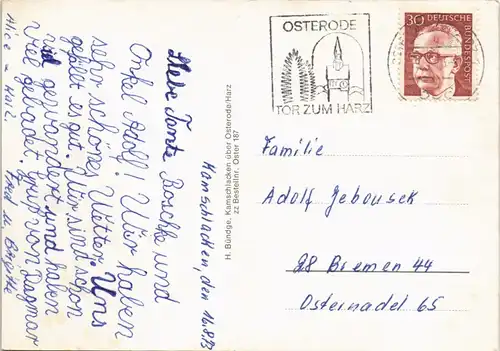 Kamschlacken, den 16.8.73
Liebe Tante Boschke und
Onkel Adolf! Wir haben
sehr schönes Wetter. Uns
gefällt es gut. Wir sind schon
viel gewandert und haben
viel gebadet. Gruß von Dagmar
Alice u. Fred u. Brigitte
H. Bündge, Kamschlacken über Osterode/Harz
zz Bestellnr. Oster 187
OSTERODE
TOR ZUM HARZ
30 DEUTSCHE
BUNDESPOST
Familie
Adolf Jebousek
28 Bremen 44
Osternadel 65